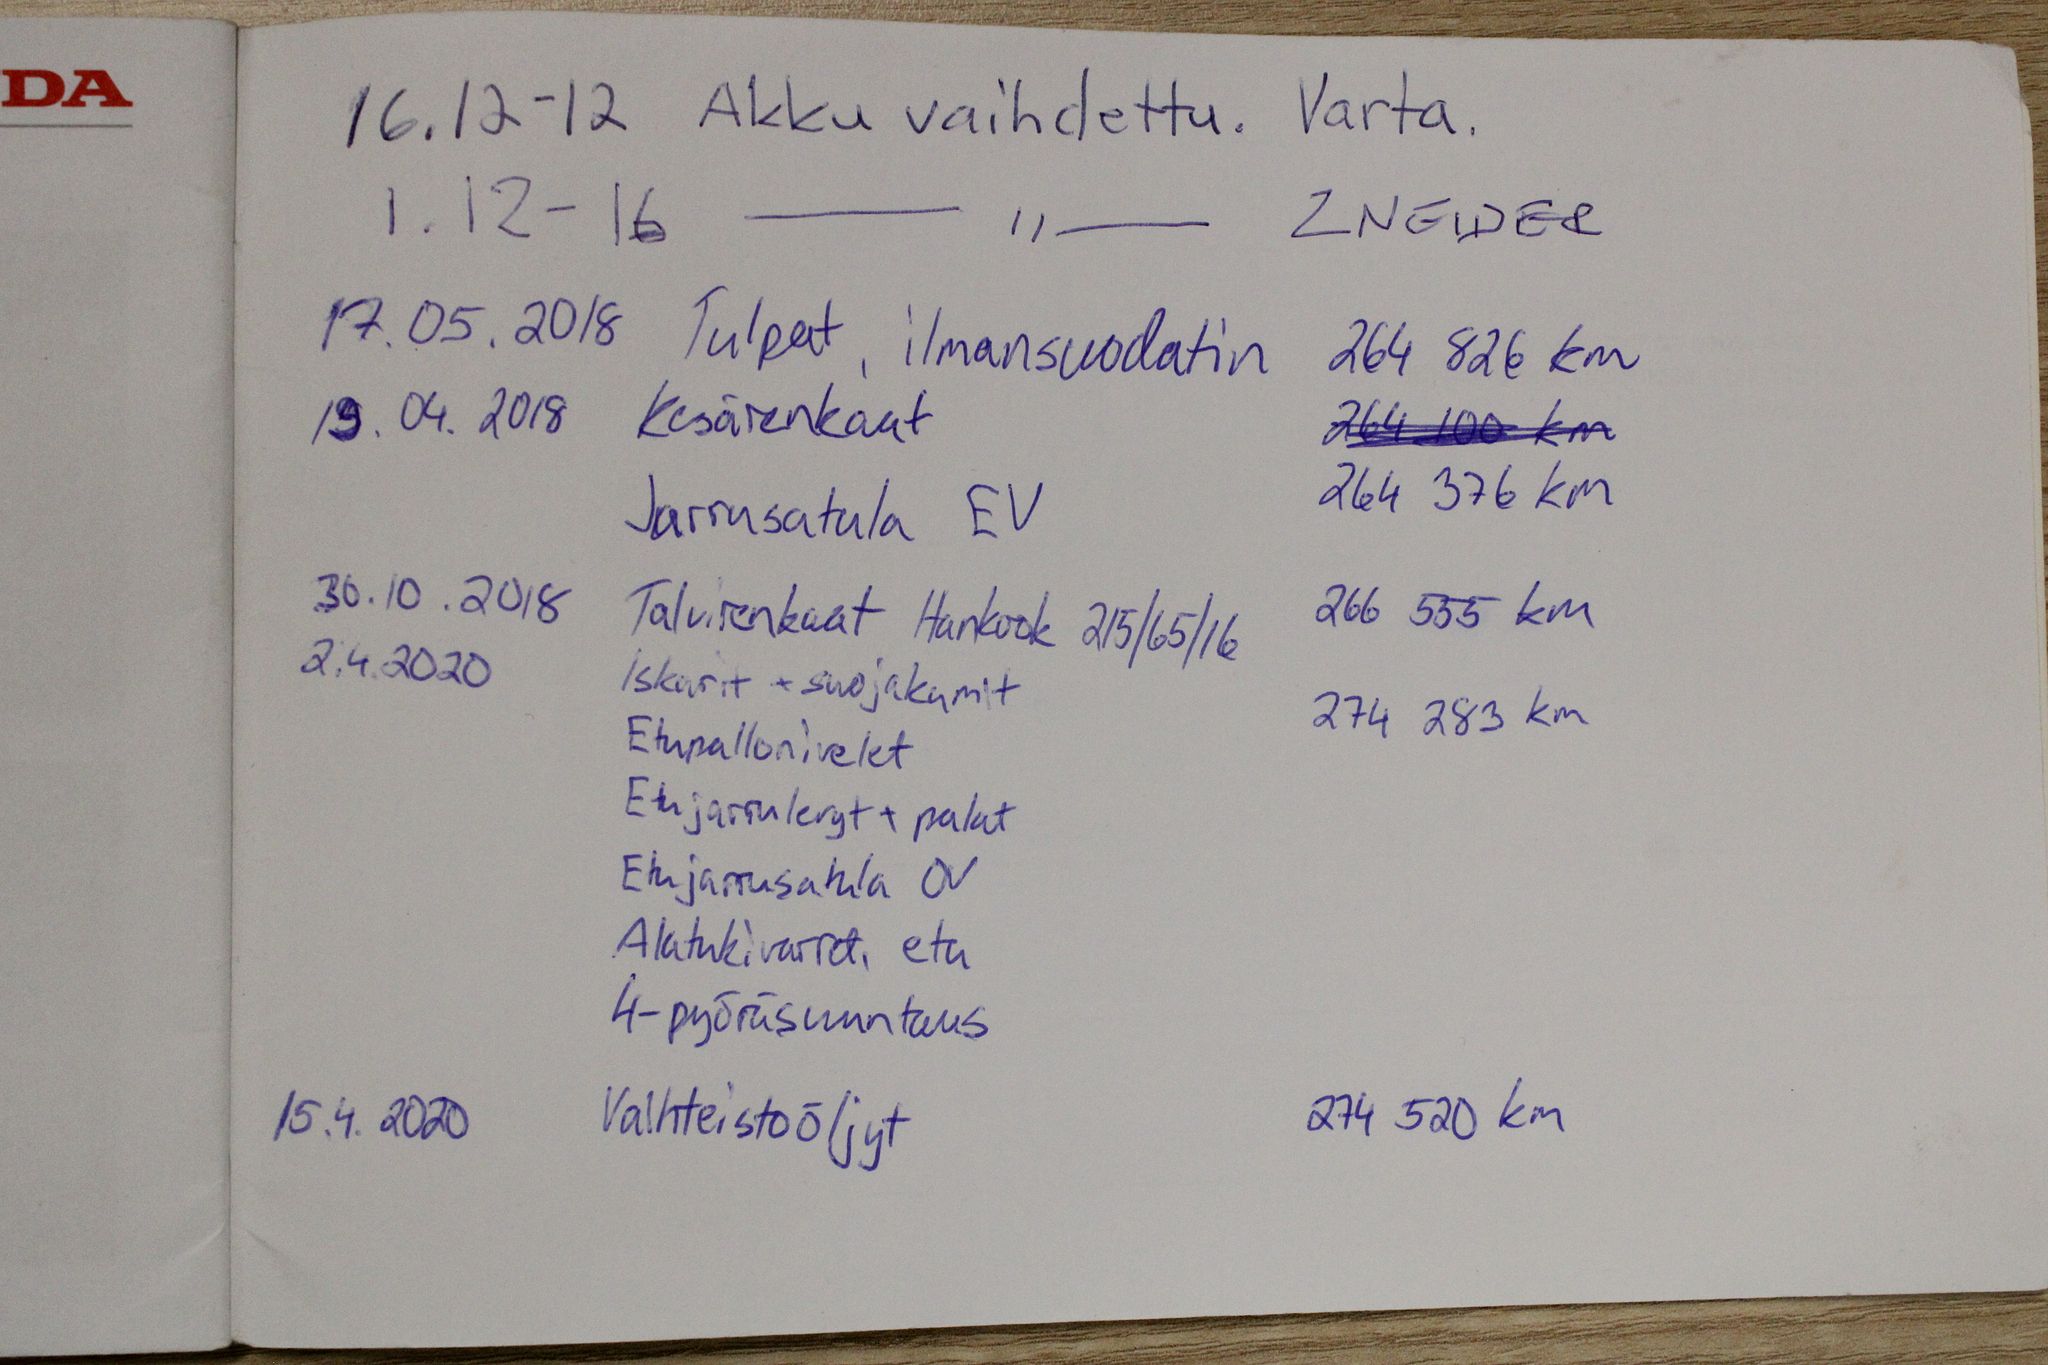 DA
16.12-12 Akku vaihdettu. Varta.
1.12-16 —— ,, —— ZNEIDER
17.05.2018 Tulpat, ilmansuodatin 264 826 km
19.04.2018 Kesärenkaat 264 100 km
Jarrusatula EV 264 376 km
30.10.2018 Talvirenkaat Hankook 215/65/16 266 555 km
2.4.2020 Iskarit + suojakumit 274 283 km
Etupallonivelet
Etujarrulevyt + palat
Etujarrusatula OV
Alatukivarret, etu
4-pyöräsuuntaus
15.4.2020 Vaihteistoöljyt 274 520 km